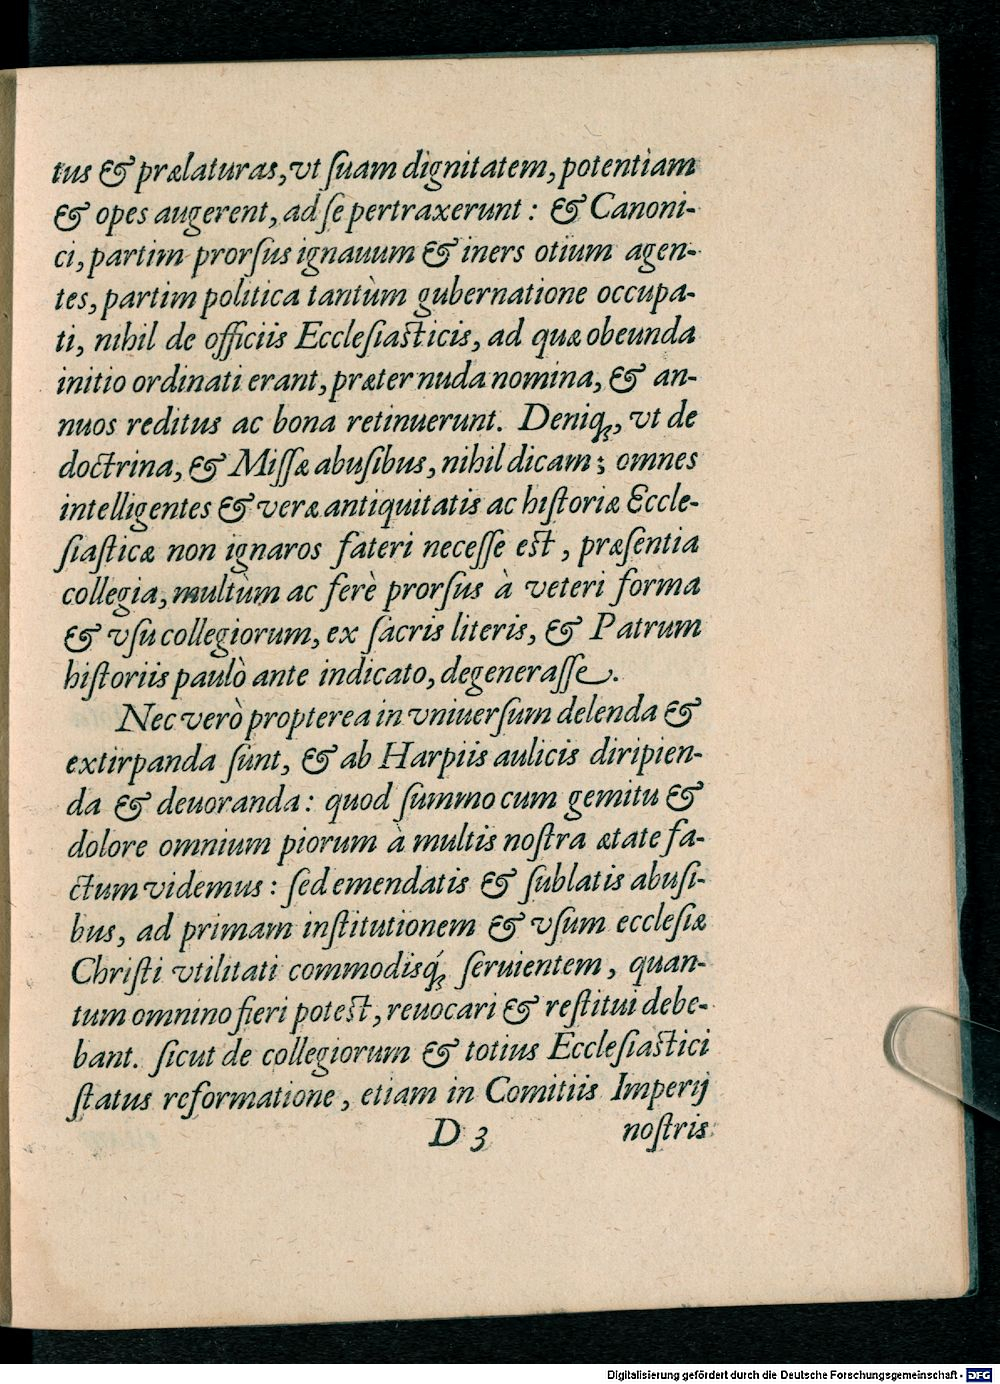 tus & prælaturas, vt ſuam dignitatem, potentiam
& opes augerent, ad ſe pertraxerunt: & Canoni-
ci, partim prorſus ignauum & iners otium agen-
tes, partim politica tantùm gubernatione occupa-
ti, nihil de officiis Eccleſiaſticis, ad quæ obeunda
initio ordinati erant, præter nuda nomina, & an-
nuos reditus ac bona retinuerunt. Deniqꝫ, vt de
doctrina, & Miſſæ abuſibus, nihil dicam; omnes
intelligentes & veræ antiquitatis ac hiſtoriæ Eccle-
ſiaſticæ non ignaros fateri neceſſe eſt, præſentia
collegia, multùm ac ferè prorſus à veteri forma
& vſu collegiorum, ex ſacris literis, & Patrum
hiſtoriis paulò ante indicato, degeneraſſe.
Nec verò propterea in vniuerſum delenda &
extirpanda ſunt, & ab Harpiis aulicis diripien-
da & deuoranda: quod ſummo cum gemitu &
dolore omnium piorum à multis noſtra ætate fa-
ctum videmus: ſed emendatis & ſublatis abuſi-
bus, ad primam inſtitutionem & vſum eccleſiæ
Chriſti vtilitati commodisq́ꝫ ſeruientem, quan-
tum omnino fieri poteſt, reuocari & reſtitui debe-
bant. ſicut de collegiorum & totius Eccleſiaſtici
ſtatus reformatione, etiam in Comitiis Imperij
D 3 noſtris
Digitalisierung gefördert durch die Deutsche Forschungsgemeinschaft - DFG